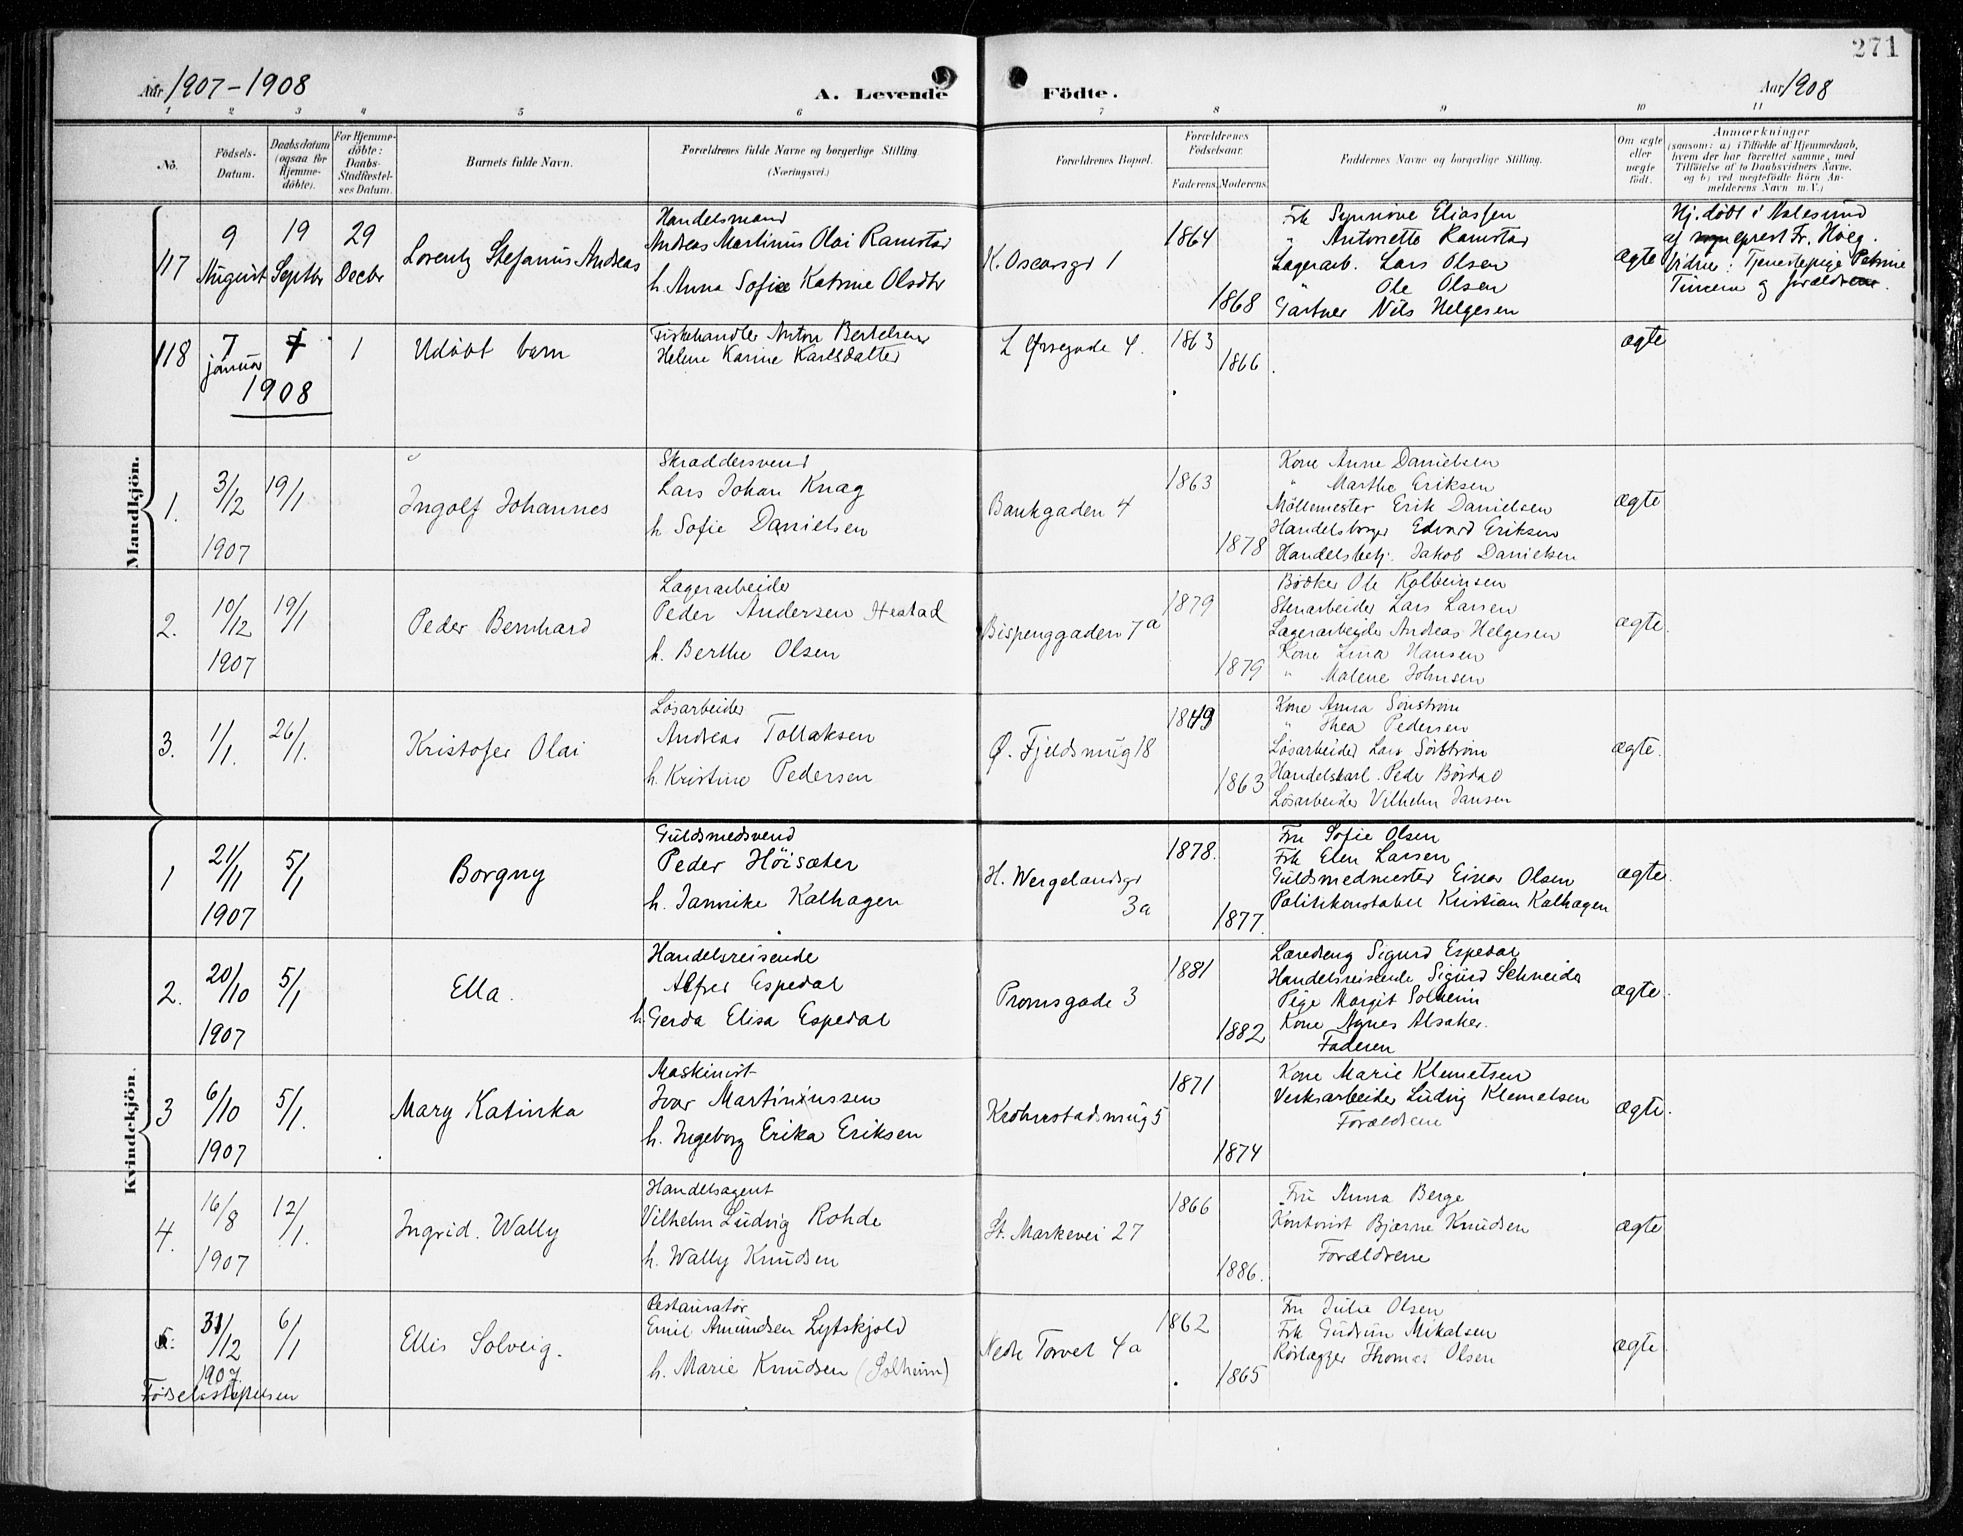 271
Aar 1907-1908
A. Levende Födte.
Aar 1908
1 2 3 4 5 6 7 8 9 10 11
No.
Födsels-Datum.
Daabsdatum (ogsaa for Hjemme-döbte).
For Hjemme-döbte: Daabs-Stadfæstel-ses Datum.
Barnets fulde Navn.
Forældrenes fulde Navne og borgerlige Stilling (Næringsvei.)
Forældrenes Bopæl.
Forældrenes Födselsaar.
Faderens. Moderens.
Faddernes Navne og borgerlige Stilling.
Om ægte eller uægte födt.
Anmærkninger
(saasom: a) i Tilfælde af Hjemmedaab,
hvem der har forrettet samme, med
Tilföielse af to Daabsvidners Navne,
og b) ved uægtefödte Börn An-
melderens Navn m. V.)
Mandkjön.
117
9 August
19 Septbr
29 Decbr
Lorentz Stefanus Andreas
Handelsmand
Andreas Martinus Olai Ramstad
h. Anna Sofie Katrine Olsdtr
K. Oscarsgt 1
1864
1868
Frk Synnöve Eliassen
" Antonette Ramstad
Lagerarb. Lars Olsen
" Ole Olsen
Gartner Nils Helgesen
ægte
Hj. döbt i Aalesund
af eprest Fr. Höeg.
Vidner: Tjenestepige Petrine
og forældrene.
118
7 januar
1
Udöbt barn
Fiskehandler Anton Bertelsen
Helene Karine Karlsdatter
L Øvregade 4.
1863
1866
ægte
1908
1.
3/12 1907
19/1
Ingolf Johannes
Skræddersvend
Lars Johan Knag
h Sofie Danielsen
Bankgaden 4
1863
1878
Kone Anne Danielsen
" Marthe Eriksen
Möllemester Erik Danielsen
Handelsborger Edvard Eriksen
Handelsbetj. Jakob Danielsen
ægte
2.
10/12 1907
19/1
Peder Bernhard
Lagerarbeider
Peder Andersen Hestad
h. Berthe Olsen
Bispenggaden 7a
1879
1879
Bödker Ole Kolbeinsen
Stenarbeider Lars Larsen
Lagerarbeider Andreas Helgesen
Kone Lina Hansen
" Malene Johnsen
ægte.
3.
1/1.
26/1.
Kristofer Olai
Lösarbeider
Andreas Tollaksen
h. Kristine Pedersen
Ø. Fjeldsmug 18
1849
1863
Kone Anna
" Thea Pedersen
Lösarbeider Lars
Handelskarl. Peder Bördal
Lösarbeider Vilhelm Jansen
ægte.
Kvindekjön.
1
21/11 1907
5/1
Borgny
Guldsmedsvend
Peder Höisæter
h. Jannike Kalhagen
H. Wergelandsgt 3a
1878.
1877.
Fru Sofie Olsen
Frk Elen Larsen
Guldsmedmester Einar Olsen
Politikonstabel Kristian Kalhagen
ægte.
2.
20/10 1907
5/1
Ella.
Handelsreisende
Alfred Espedal
h. Gerda Elisa Espedal
Promsgade 3
1881
1882
Læredreng Sigurd Espedal
Handelsreisende Sigurd Schneider
Pige Margit Solheim
Kone Agnes Alsaker.
Faderen
ægte.
3
6/10 1907
5/1.
Mary Katinka
Maskinist
Ivar Martiniussen
h. Ingeborg Erika Eriksen
1871
1874
Kone Marie Klemetsen
Verksarbeider Ludvig Klemetsen
Forældrene
ægte.
4.
16/8 1907
12/1.
Ingrid. Wally
Handelsagent
Vilhelm Ludvig Rohde
h. Wally Knudsen
St. Markevei 27
1866
1886.
Fru Anna Berge
Kontorist Bjarne Knudsen
Forældrene
ægte
5.
31/12 1907.
6/1
Ellis Solveig.
Restauratör
Emil Amundsen Lytskjold
h. Marie Knudsen (Solheim)
Nedre Torvet 4a
1862
1865
Fru Julie Olsen
Frk Gudrun Mikalsen
Rörlægger Thomas Olsen
ægte.
Födselsstiftelsen